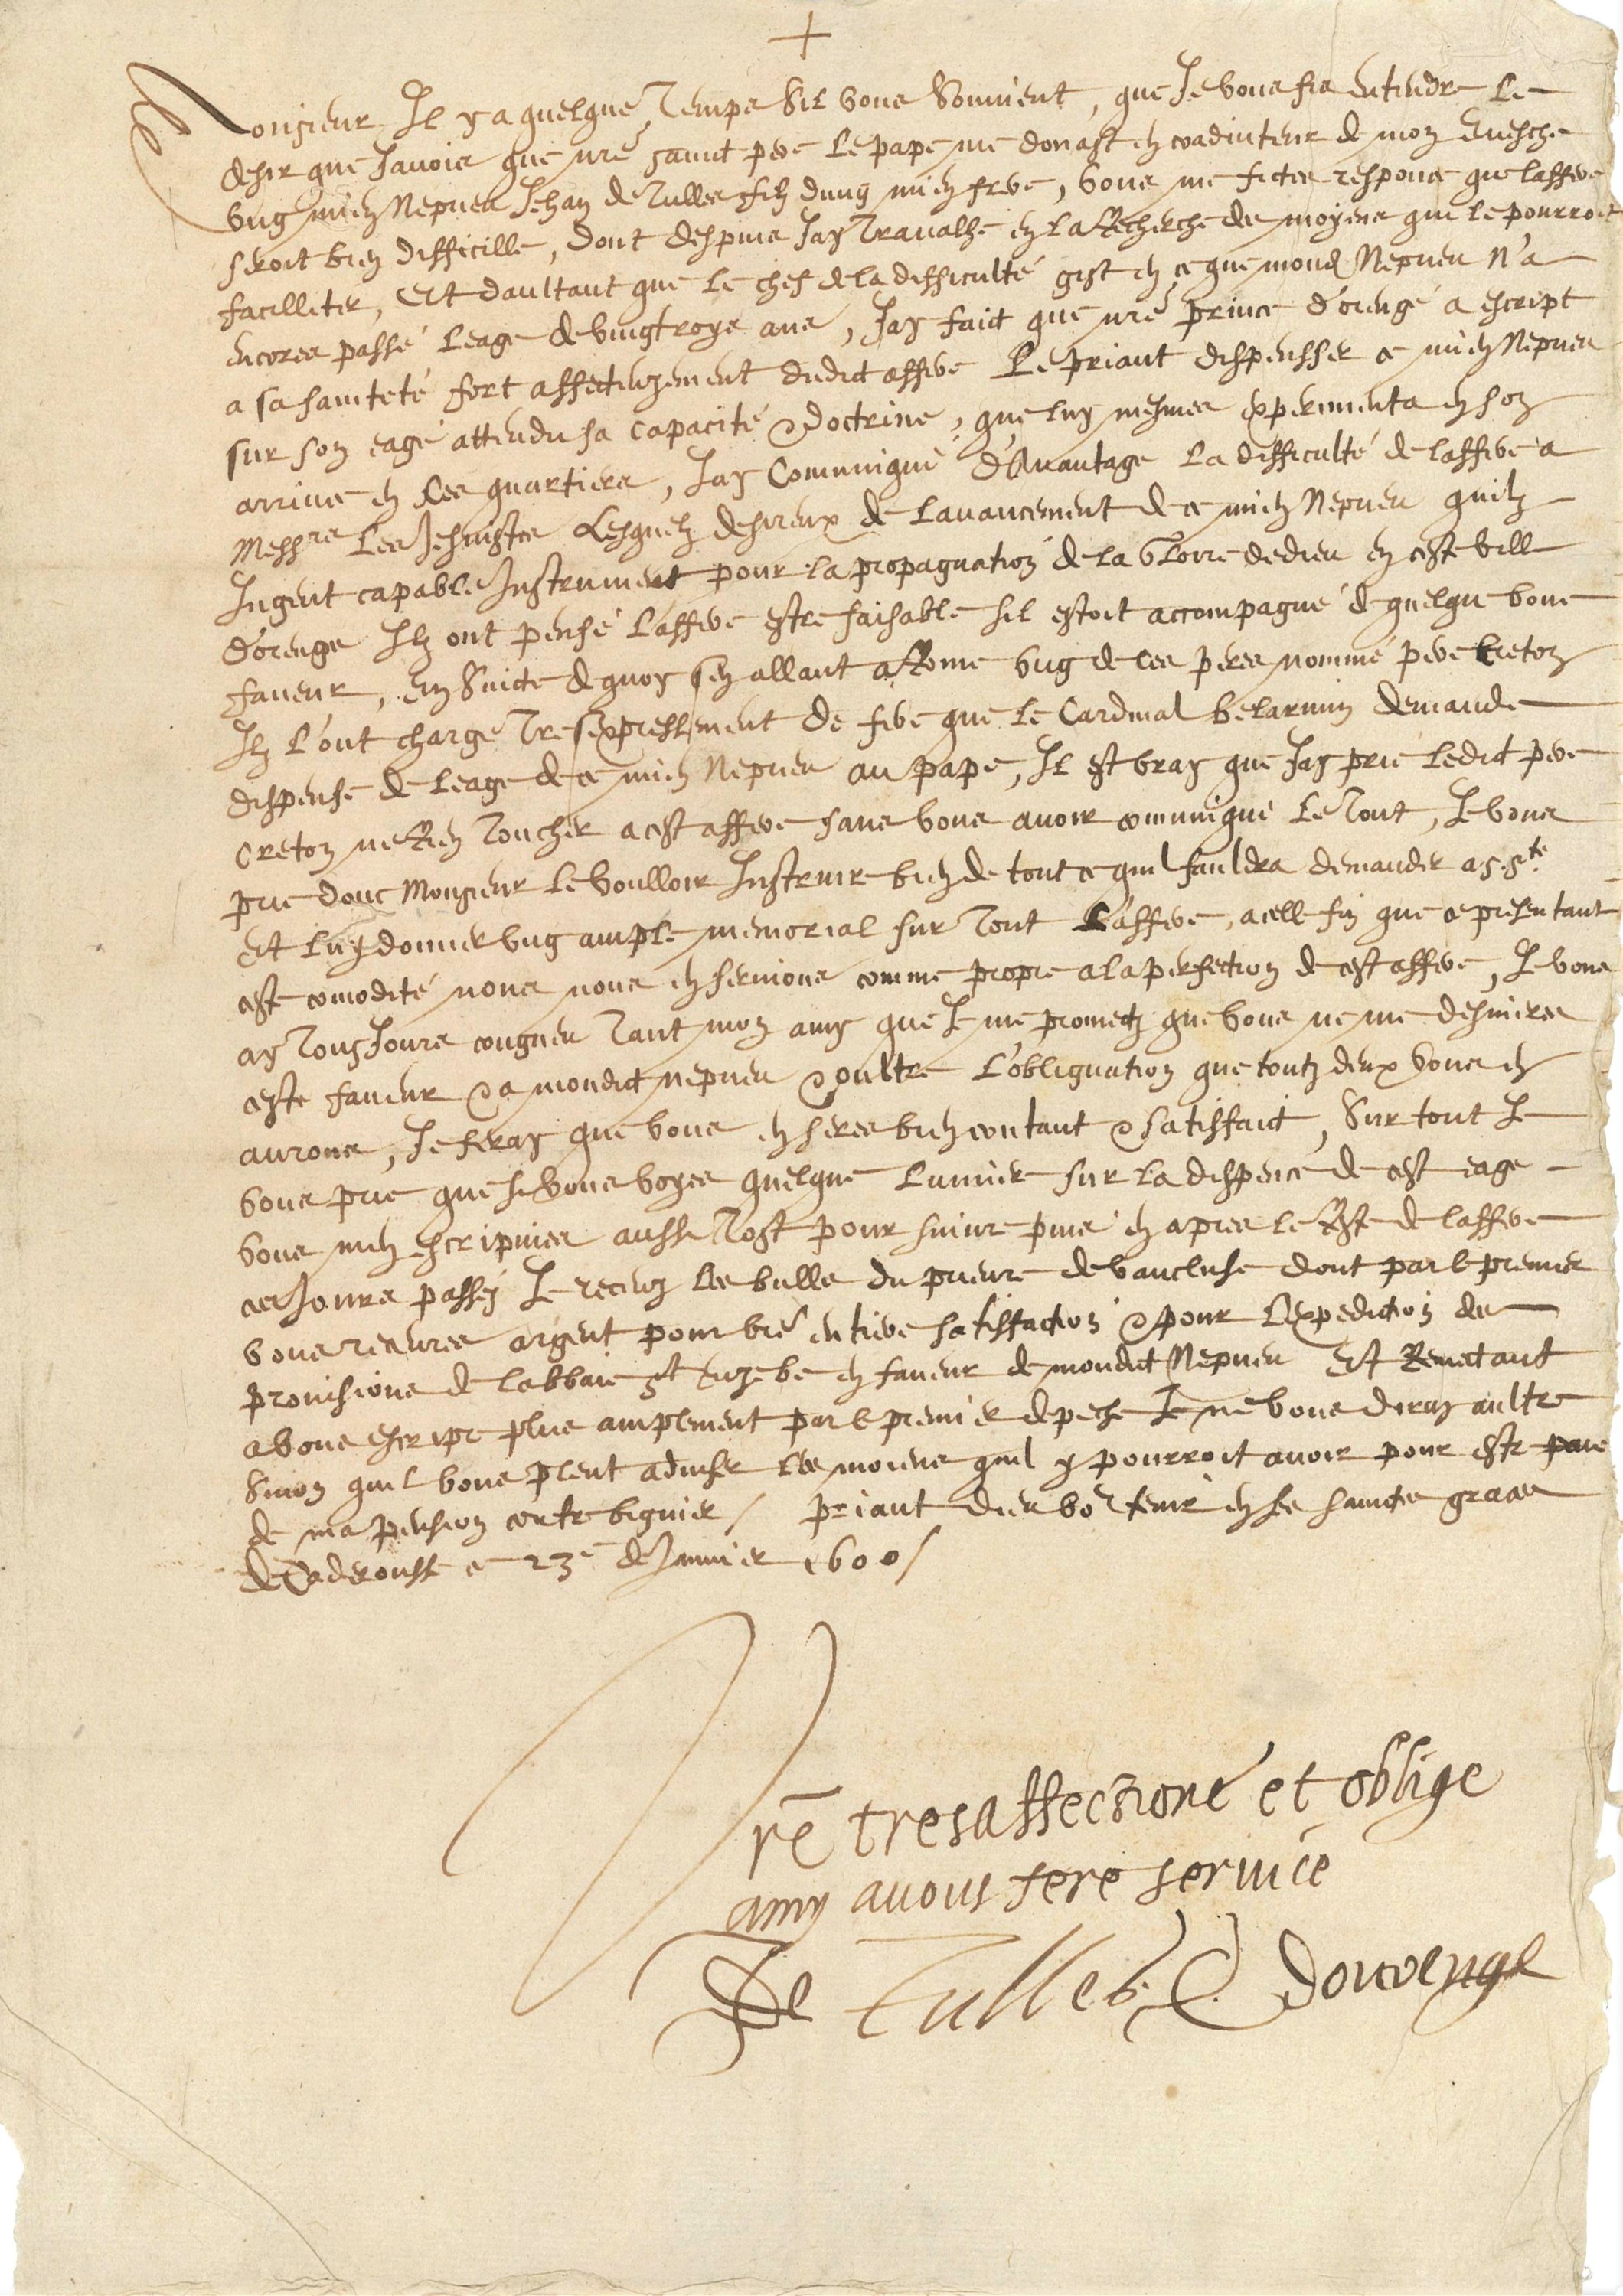 +
Monsieur Il y a quelque Temps Sil vous Souuient, que Ie vous fis entendre Le
desir que Iauois que nre sainct pere Le pape me donast en coadiuteur de mon Euesche
vng mien Nepueu Iehan de Tulles filz dung mien frere, vous me fictes responce que laffere
seroit bien difficille, dont despuis Iay Trauaille en la Recherche des moyens qui le pourroit
facilliter, Et daultant que Le chef de la difficulté gist en ce que mond Nepueu N'a
encores passé Leage de vingtroys ans, Iay faict que nre prince d'orenge a escript
a sa saincteté fort affectiuzement dudict affere Le priant dispensser ce mien Nepueu
sur son eage attendu sa capacité & doctrine, que luy mesmes experimenta en son
arriuee en Ces quartiers, Iay Communiqué d'Auantage La difficulté de laffere a
Messrs Les Iesuistes Lesquelz desireux de Lauancement de ce mien Nepueu quilz
Iugent capable Instrument pour la propaguation de la Gloire de dieu en ceste ville
d'orenge Ilz ont pensé L'affere estre faisable sil estoit accompagné de quelque bonne
faueur, En Suicte de quoy sen allant a Rome vng de ces peres nommé pere Creton
Ilz L'ont chargé Tresexpressement de fere que Le Cardinal belarmin demande
dispense de Leage de ce mien Nepueu au pape, Il est vray que Iay prié Ledict pere
Creton ne Rien Toucher a cest affere sans vous auoir comunique Le Tout, Ie vous
prie donc Monsieur Le voulloir Instruire bien de tout ce quil fauldra demander a s. Ste
Et Luy donner vng ample memorial sur Tout L'affere, a celle fin que ce presentant
ceste comodité nous nous en seruions comme propre a la perfection de cest affere, Ie vous
ay Tousiours cogneu Tant mon amy que Ie me prometz que vous ne me desnieres
ceste faueur & a mondict nepueu & oultre L'obliguation que toutz deux vous en
aurons, Ie feray que vous en seres bien contant & satisfaict, Sur tout Ie
vous prie que si vous voyes quelque Lumier sur la dispence de cest eage
vous men escripuies aussi Tost pour suiure puis en apres le Reste de laffere
ces Iours passes Ie receuz les bulles du prieure de vaucluse dont par le premier
vous receures argent pour vre entiere satisfaction & pour L'expedicion des
prouisions de labbaie St Euzebe en faueur de mondict Nepueu Et Remectant
a vous escripre plus amplement par le premier depeche Ie ne vous diray aultre
Sinon quil vous pleut aduiser les moiens quil y pourroit auoir pour estre paie
de ma pension contre viguier / priant dieu vo9 tenir en ses sainctes graces
de Caderousse ce 23e de Ianuier 1600 /
Vre tresaffectioné et oblige
amy a vous fere seruice
De Tulles E. dorenge